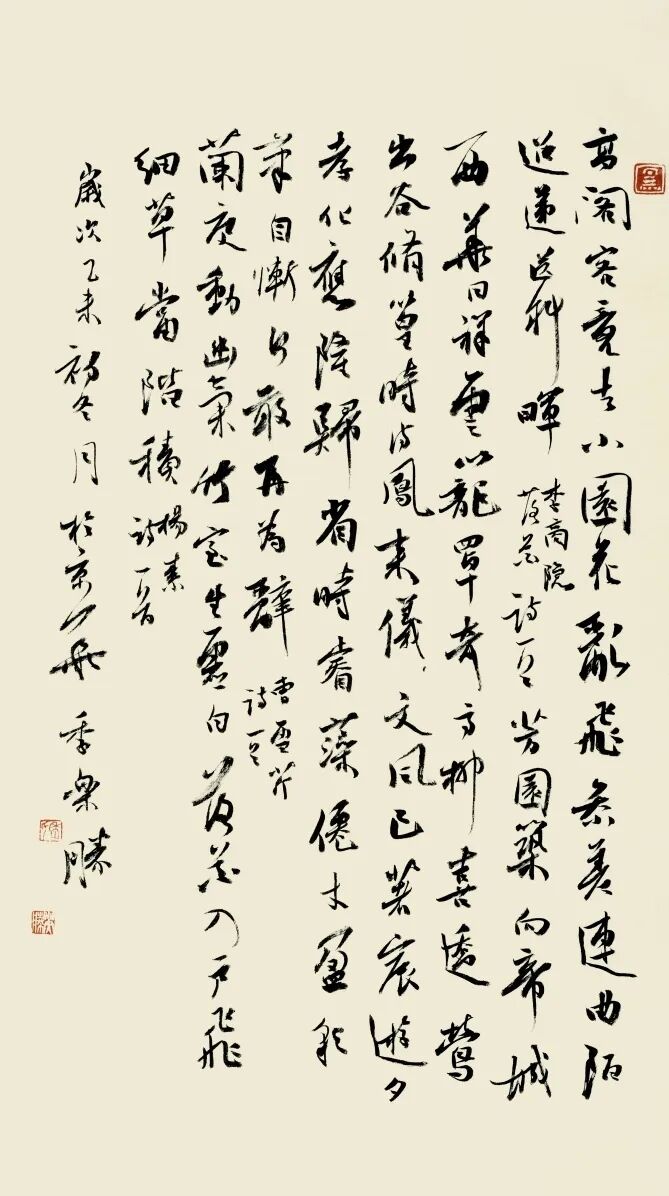 高閣客竟去小園花亂飛參差連曲陌
迢遞送斜暉 李商隐落花诗一首 芳園築向帝城
西華日祥雲籠罩奇高柳喜遷鶯
出谷脩篁時待鳳來儀文風已著宸遊夕
孝化應隆歸省時睿藻僊才盈彩
筆自慚何敢再為辭 曹雪芹诗一首
蘭庭動幽氣竹室生虛白落花入戶飛
細草當階積 楊素诗一首
歲次乙未初冬月於京華季樂勝